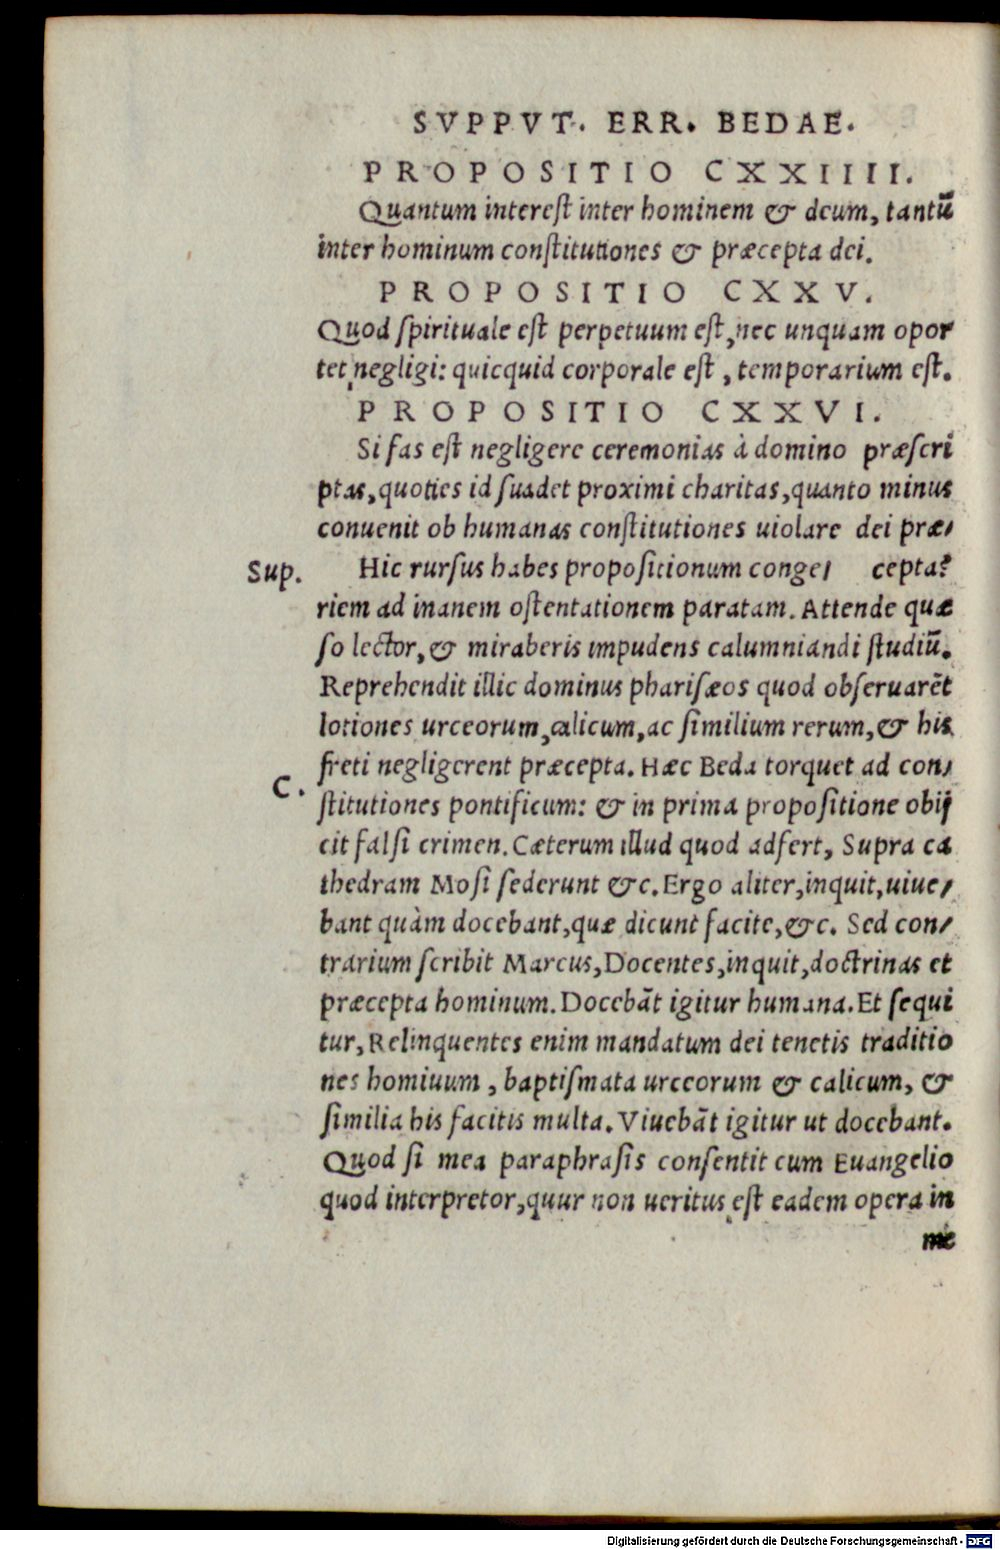 SVPPVT. ERR. BEDAE.
PROPOSITIO CXXIIII.
Quantum interest inter hominem & deum, tantũ
inter hominum constitutiones & præcepta dei.
PROPOSITIO CXXV.
Quod spirituale est perpetuum est, nec unquam opor
tet negligi: quicquid corporale est, temporarium est.
PROPOSITIO CXXVI.
Si fas est negligere ceremonias à domino præscri
ptas, quoties id suadet proximi charitas, quanto minus
conuenit ob humanas constitutiones uiolare dei præ/
Sup. Hic rursus habes propositionum conge/ cepta?
riem ad inanem ostentationem paratam. Attende quæ
so lector, & miraberis impudens calumniandi studiũ.
Reprehendit illic dominus pharisæos quod obseruarẽt
lotiones urceorum, calicum, ac similium rerum, & his
freti negligerent præcepta. Hæc Beda torquet ad con/
C. stitutiones pontificum: & in prima propositione obij
cit falsi crimen. Cæterum illud quod adfert, Supra ca
thedram Mosi sederunt &c. Ergo aliter, inquit, uiue/
bant quàm docebant, quæ dicunt facite, &c. Sed con/
trarium scribit Marcus, Docentes, inquit, doctrinas et
præcepta hominum. Docebãt igitur humana. Et sequi
tur, Relinquentes enim mandatum dei tenetis traditio
nes homiuum, baptismata urceorum & calicum, &
similia his facitis multa. Viuebãt igitur ut docebant.
Quod si mea paraphrasis consentit cum Euangelio
quod interpretor, quur non ueritus est eadem opera in
me
Digitalisierung gefördert durch die Deutsche Forschungsgemeinschaft - DFG